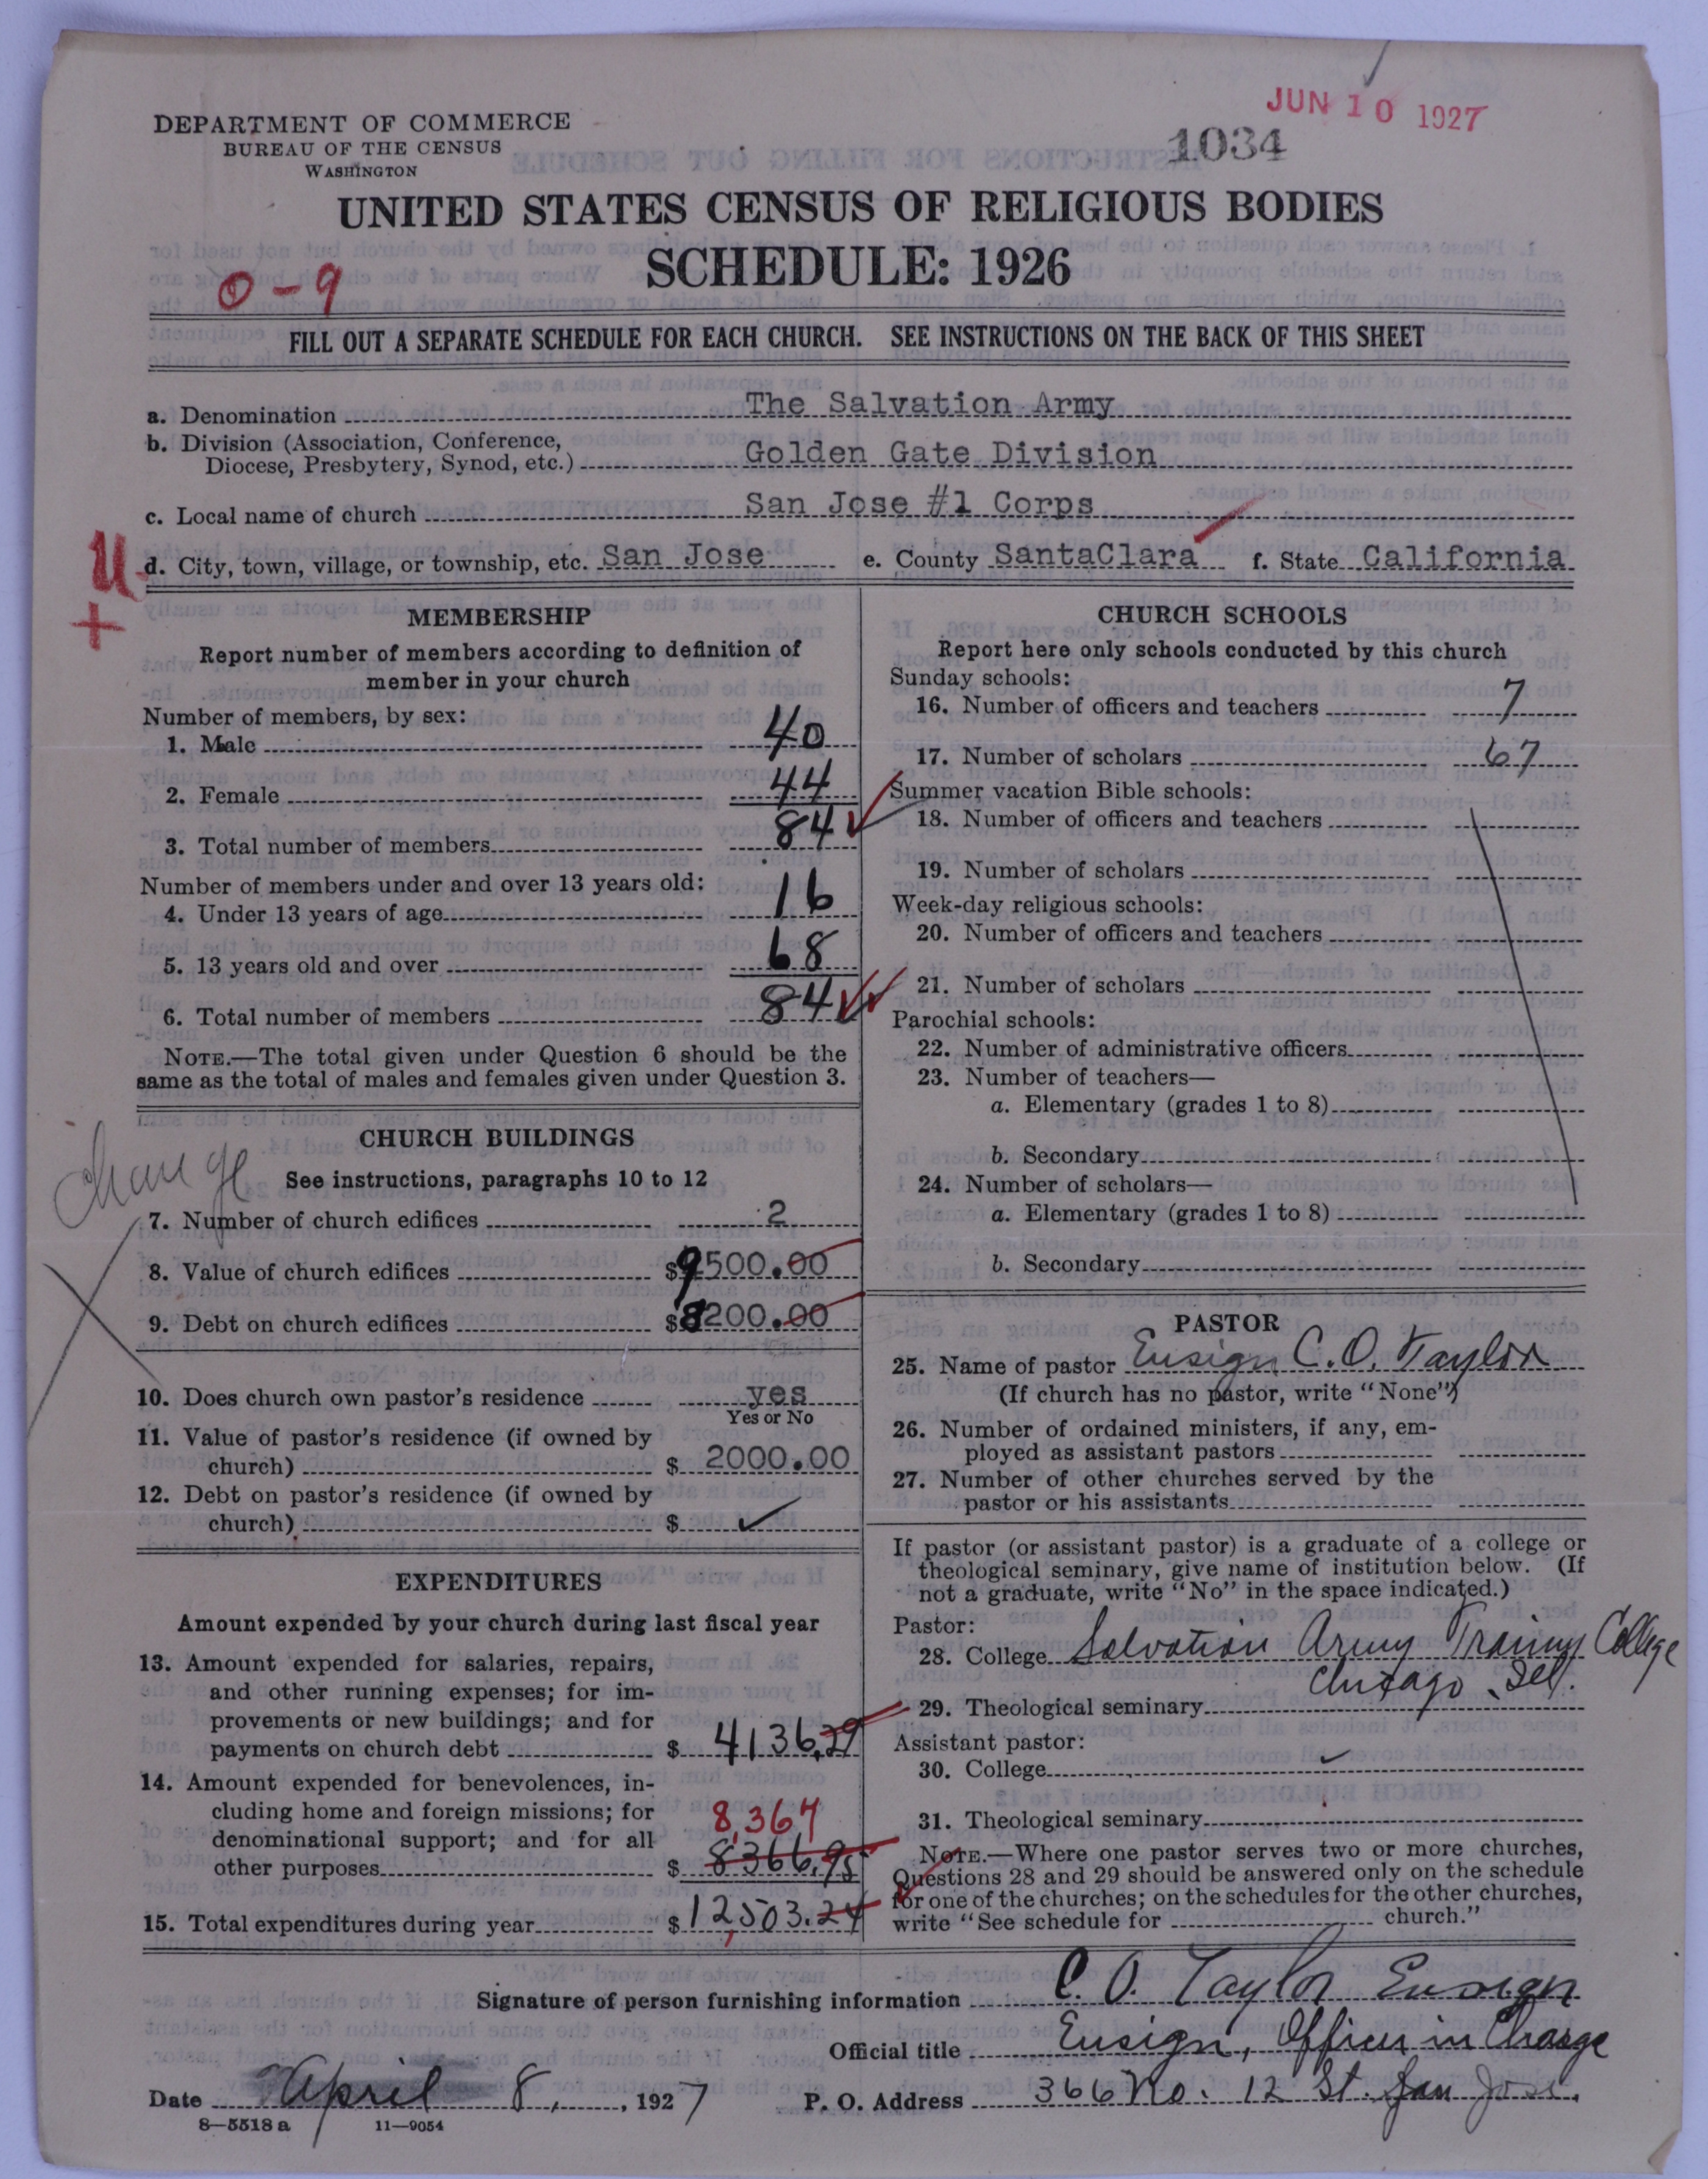 JUN 10 1927
1034
DEPARTMENT OF COMMERCE
BUREAU OF THE CENSUS
WASHINGTON
UNITED STATES CENSUS OF RELIGIOUS BODIES
SCHEDULE: 1926
0-9
FILL OUT A SEPARATE SCHEDULE FOR EACH CHURCH. SEE INSTRUCTIONS ON THE BACK OF THIS SHEET
a. Denomination The Salvation Army
b. Division (Association, Conference,
Diocese, Presbytery, Synod, etc.) Golden Gate Division
c. Local name of church San Jose #1 Corps
d. City, town, village, or township, etc. San Jose e. County SantaClara f. State California
U
+
MEMBERSHIP
Report number of members according to definition of
member in your church
Number of members, by sex:
1. Male 40
2. Female 44
3. Total number of members 84
Number of members under and over 13 years old:
4. Under 13 years of age 16
5. 13 years old and over 68
6. Total number of members 84
NOTE.—The total given under Question 6 should be the
same as the total of males and females given under Question 3.
CHURCH BUILDINGS
change
See instructions, paragraphs 10 to 12
7. Number of church edifices 2
8. Value of church edifices $ 9500.00
9. Debt on church edifices $ 8200.00
10. Does church own pastor's residence yes
Yes or No
11. Value of pastor's residence (if owned by
church) $ 2000.00
12. Debt on pastor's residence (if owned by
church) $ ✓
EXPENDITURES
Amount expended by your church during last fiscal year
13. Amount expended for salaries, repairs,
and other running expenses; for im-
provements or new buildings; and for
payments on church debt $ 4136.29
14. Amount expended for benevolences, in-
cluding home and foreign missions; for
8,367
denominational support; and for all
other purposes $ 8366.95
15. Total expenditures during year $ 12,503.24
CHURCH SCHOOLS
Report here only schools conducted by this church
Sunday schools:
16. Number of officers and teachers 7
17. Number of scholars 67
Summer vacation Bible schools:
18. Number of officers and teachers
19. Number of scholars
Week-day religious schools:
20. Number of officers and teachers
21. Number of scholars
Parochial schools:
22. Number of administrative officers
23. Number of teachers—
a. Elementary (grades 1 to 8)
b. Secondary
24. Number of scholars—
a. Elementary (grades 1 to 8)
b. Secondary
PASTOR
25. Name of pastor Ensign C.O. Taylor
(If church has no pastor, write "None")
26. Number of ordained ministers, if any, em-
ployed as assistant pastors
27. Number of other churches served by the
pastor or his assistants
If pastor (or assistant pastor) is a graduate of a college or
theological seminary, give name of institution below. (If
not a graduate, write "No" in the space indicated.)
Pastor:
28. College Salvation Army Training College
Chicago, Ill.
29. Theological seminary
Assistant pastor:
30. College ✓
31. Theological seminary
NOTE.—Where one pastor serves two or more churches,
Questions 28 and 29 should be answered only on the schedule
for one of the churches; on the schedules for the other churches,
write "See schedule for church."
Signature of person furnishing information C. O. Taylor Ensign
Official title Ensign, Officer in Charge
Date April 8, 1927 P. O. Address 366 No. 12 St. San Jose.
8—5518 a 11—9054